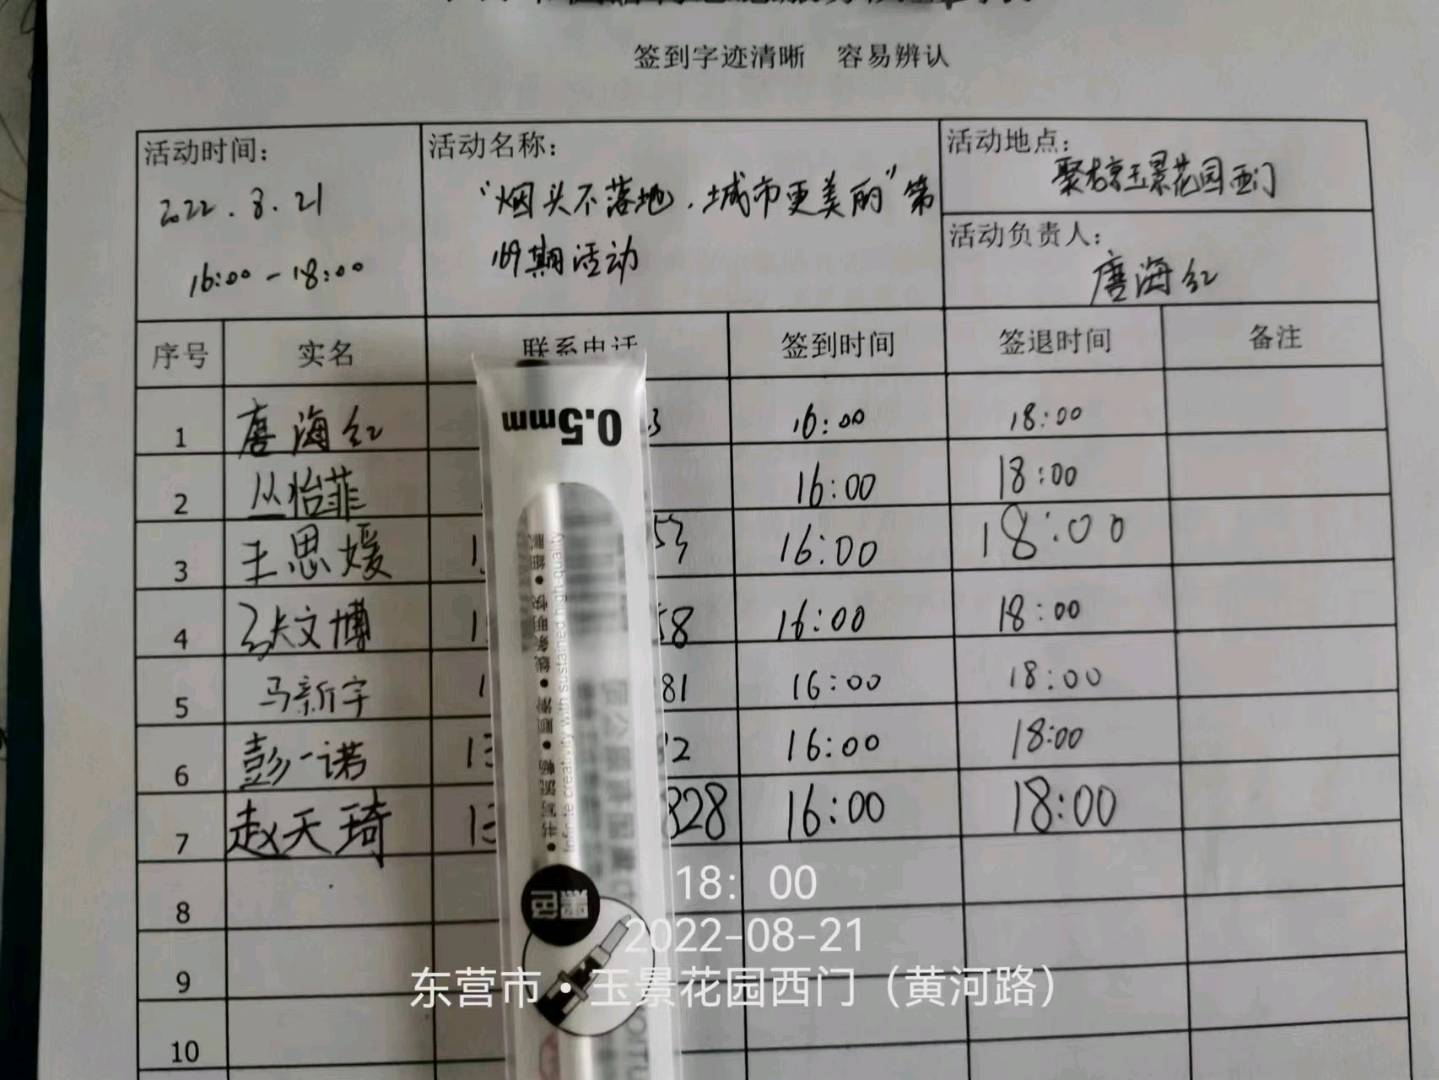 签到字迹清晰 容易辨认
活动时间：
2022.8.21
16:00-18:00
活动名称：
"烟头不落地，城市更美丽"第
169期活动
活动地点：
玉景花园西门
活动负责人：
唐海红
序号 实名 联系电话 签到时间 签退时间 备注
1 唐海红 3 16:00 18:00
2 丛怡菲 16:00 18:00
3 王思媛 1 53 16:00 18:00
4 张文博 1 58 16:00 18:00
5 马新宇 1 81 16:00 18:00
6 彭一诺 13 2 16:00 18:00
7 赵天琦 13 828 16:00 18:00
8
9
10
0.5mm
Infinite creativity with sustained high-quality
黑色
18：00
2022-08-21
东营市·玉景花园西门（黄河路）